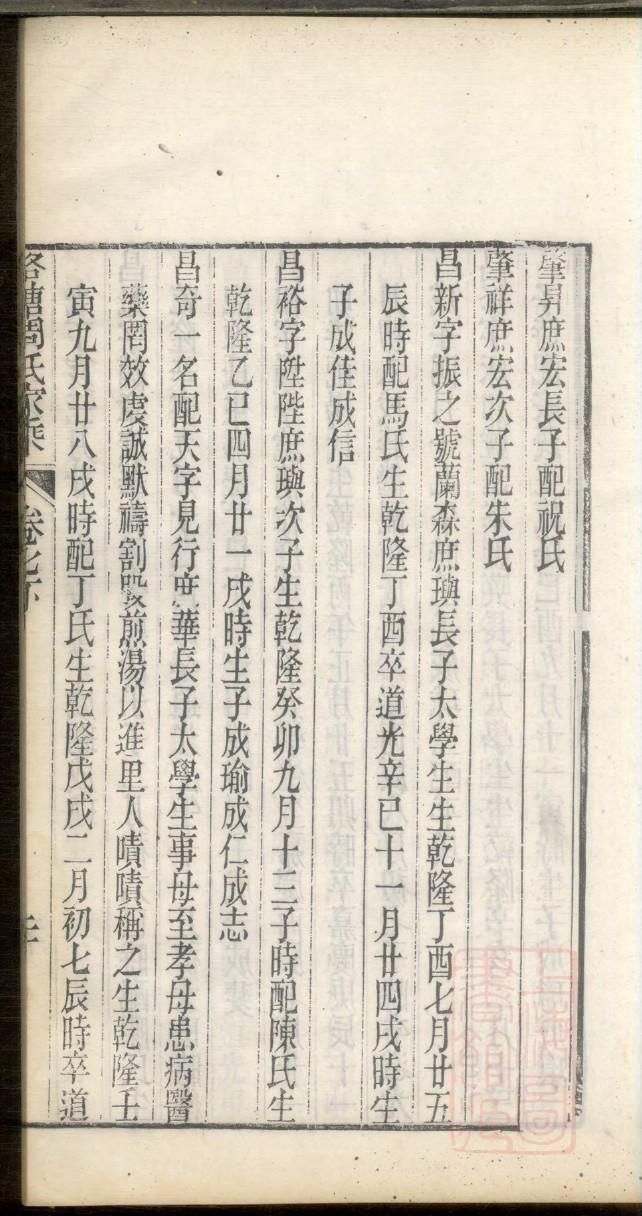 肇昇庶宏長子配祝氏
肇祥庶宏次子配朱氏
昌新字振之號蘭森庶璵長子太學生生乾隆丁酉七月廿五
辰時配馬氏生乾隆丁酉卒道光辛巳十一月廿四戌時生
子成佳成信
昌裕字陞陛庶璵次子生乾隆癸卯九月十三子時配陳氏生
乾隆乙巳四月廿一戌時生子成瑜成仁成志
昌奇一名配天字見行庶華長子太學生事母至孝母患病醫
藥罔效虔誠默禱割股煎湯以進里人嘖嘖稱之生乾隆壬
寅九月廿八戌時配丁氏生乾隆戊戌二月初七辰時卒道
周氏家乘 卷之下